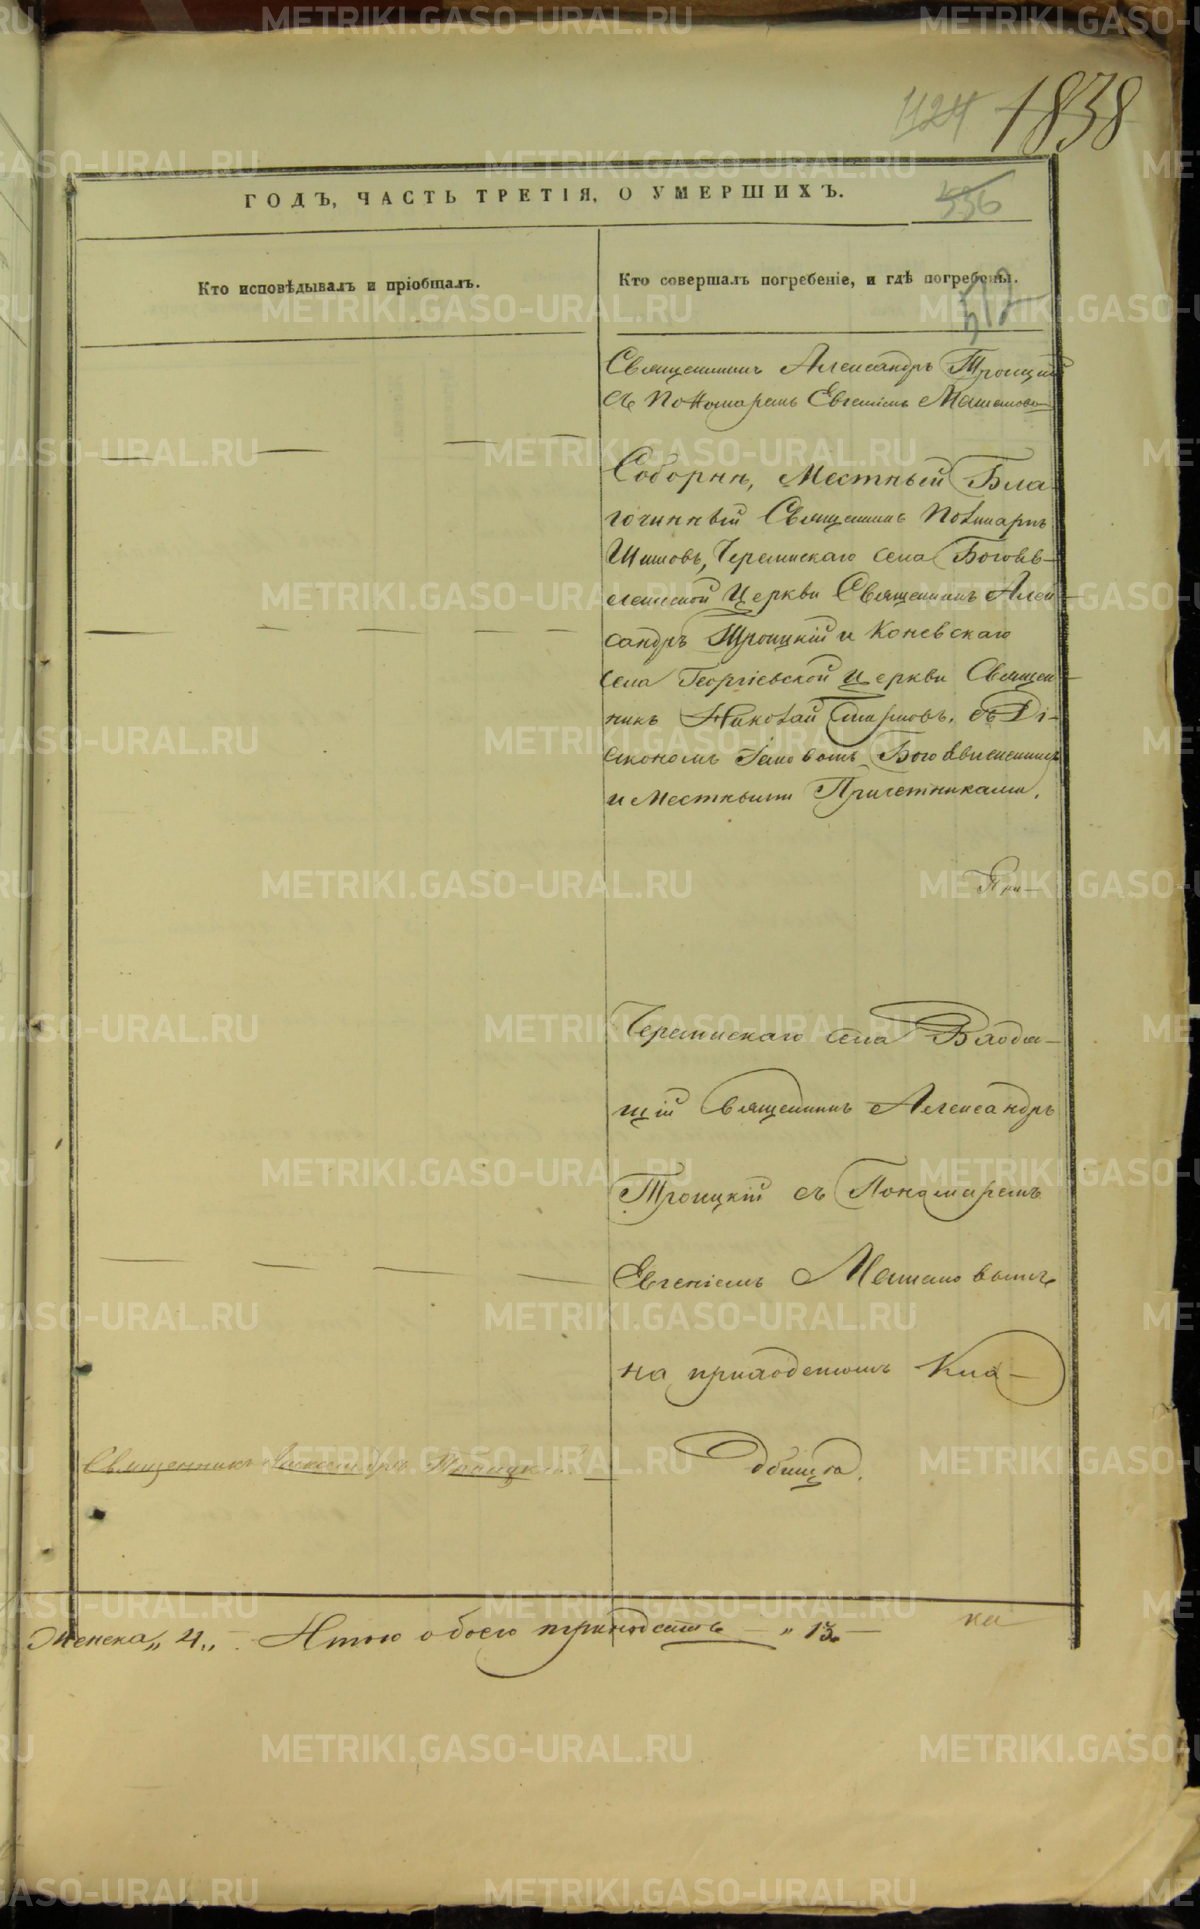 424 1838
ГОДЪ, ЧАСТЬ ТРЕТІЯ, О УМЕРШИХЪ.
336
Кто исповѣдывалъ и пріобщалъ.
Кто совершалъ погребеніе, и гдѣ погребены.
Священникъ Александръ Троицкій
съ Пономаремъ Евгеніемъ
Соборнѣ, Местный Бла-
гочинный Священникъ
Шишовъ, Черемискаго села Богояв-
ленской Церкви Священникъ Алек-
сандръ Троицкій и Коневскаго
села Георгіевской Церкви Священ-
никъ Николай Смирновъ, съ Ді-
акономъ Богоявленскимъ
и Местными Причетниками.
При-
Черемискаго села
щій Священникъ Александръ
Троицкій съ Пономаремъ
Евгеніемъ
на приходскомъ Кла-
дбищѣ.
Священникъ Александръ Троицкій
Женска „4„ Итого обоего тринадсать — „13„ —
ка
METRIKI.GASO-URAL.RU